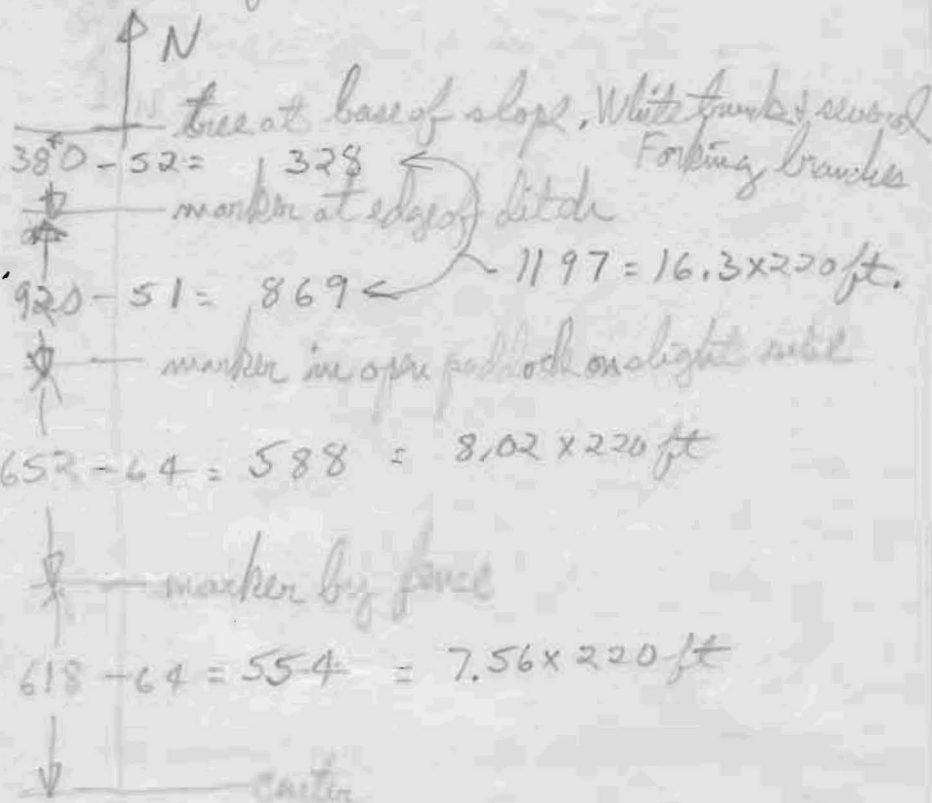 N
tree at base of slope, White trunk & several
Forking branches
380 - 52 = 328
marker at edge of ditch
1197 = 16.3 x 220 ft.
920 - 51 = 869
marker in open paddock on slight
652 - 64 = 588 = 8,02 x 220 ft
marker by fence
618 - 64 = 554 = 7.56 x 220 ft